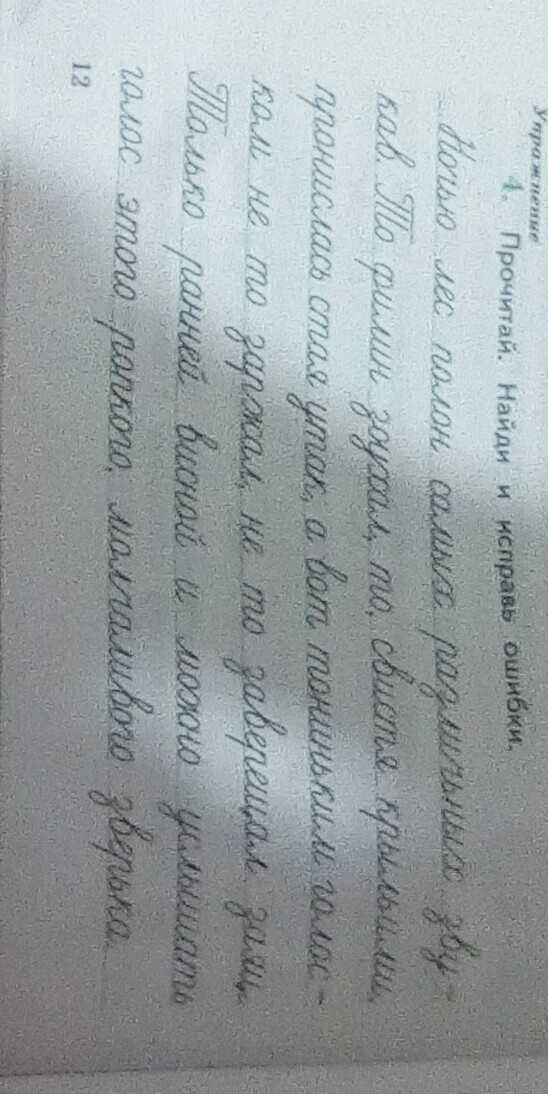 Упражнение
4. Прочитай. Найди и исправь ошибки.
Ночью лес полон самых различьных зву-
кав. То филин эаухал, то, свистя крыльими,
пронислась стая утак, а вот тониньким голос-
ком не то заржал, не то заверещал заяц.
Только ранней висной и можно услышать
голос этого ропкого, молчаливого зверька.
12